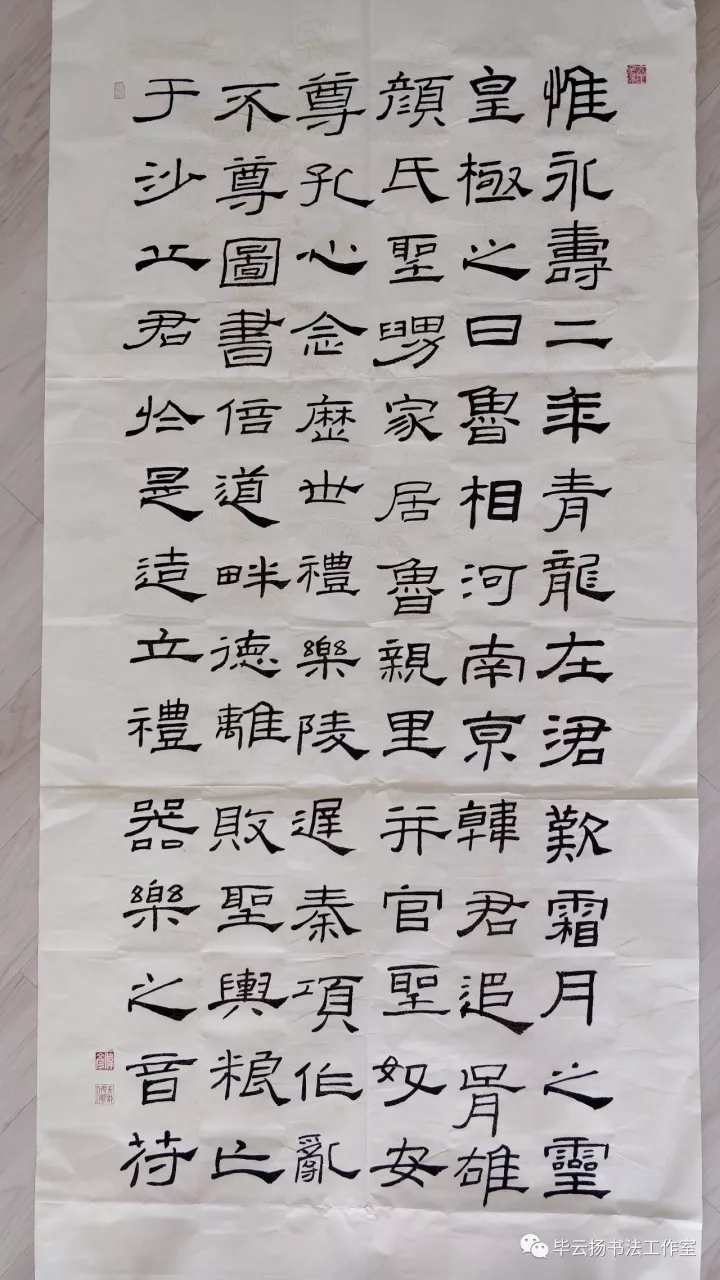 惟永壽二年青龍在涒歎霜月之靈
皇極之日魯相河南京韓君追胥雄
顏氏聖舅家居魯親里并官聖妃安
尊孔心念歷世禮樂陵遲秦項作亂
不尊圖書倍道畔德離敗聖輿粮亡
于沙丘君於是造立禮器樂之音苻
毕云扬书法工作室